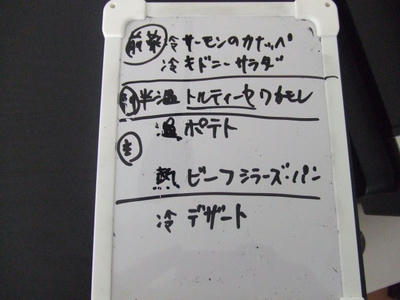 前菜 冷 サーモンのカナッペ
冷 キドニーサラダ
半温 トルティーヤワカモレ
温 ポテト
主
熱 ビーフシラーズ・パン
冷 デザート